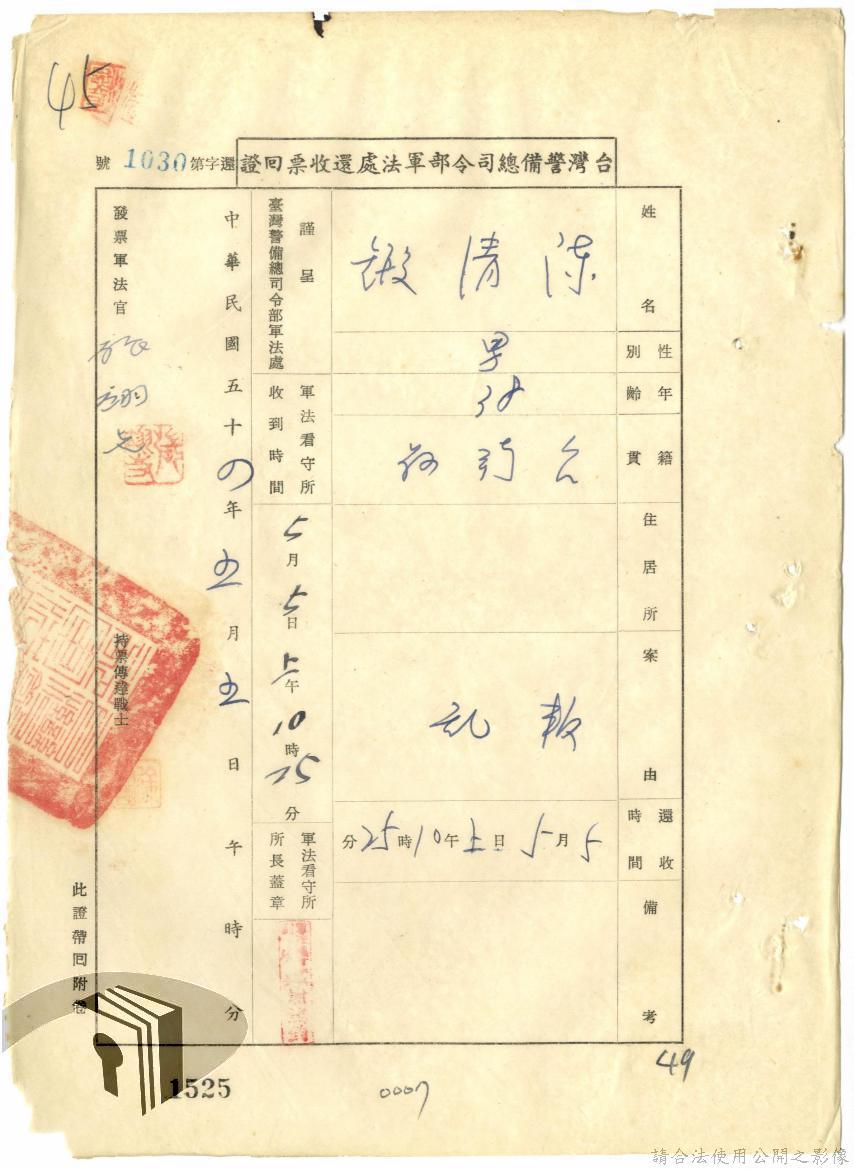 45
台灣警備總司令部軍法處還收票回證
還字第1030號
姓名
陳清鍛
性別
男
年齡
38
籍貫
住居所
案由
叛乱
還收時間
5月5日上午10時25分
備考
謹呈
臺灣警備總司令部軍法處
軍法看守所
收到時間
5月5日上午10時25分
軍法看守所
所長蓋章
中華民國五十四年五月五日午時分
發票軍法官
持票傳達戰士
此證帶回附卷
49
1525
0007
請合法使用公開之影像